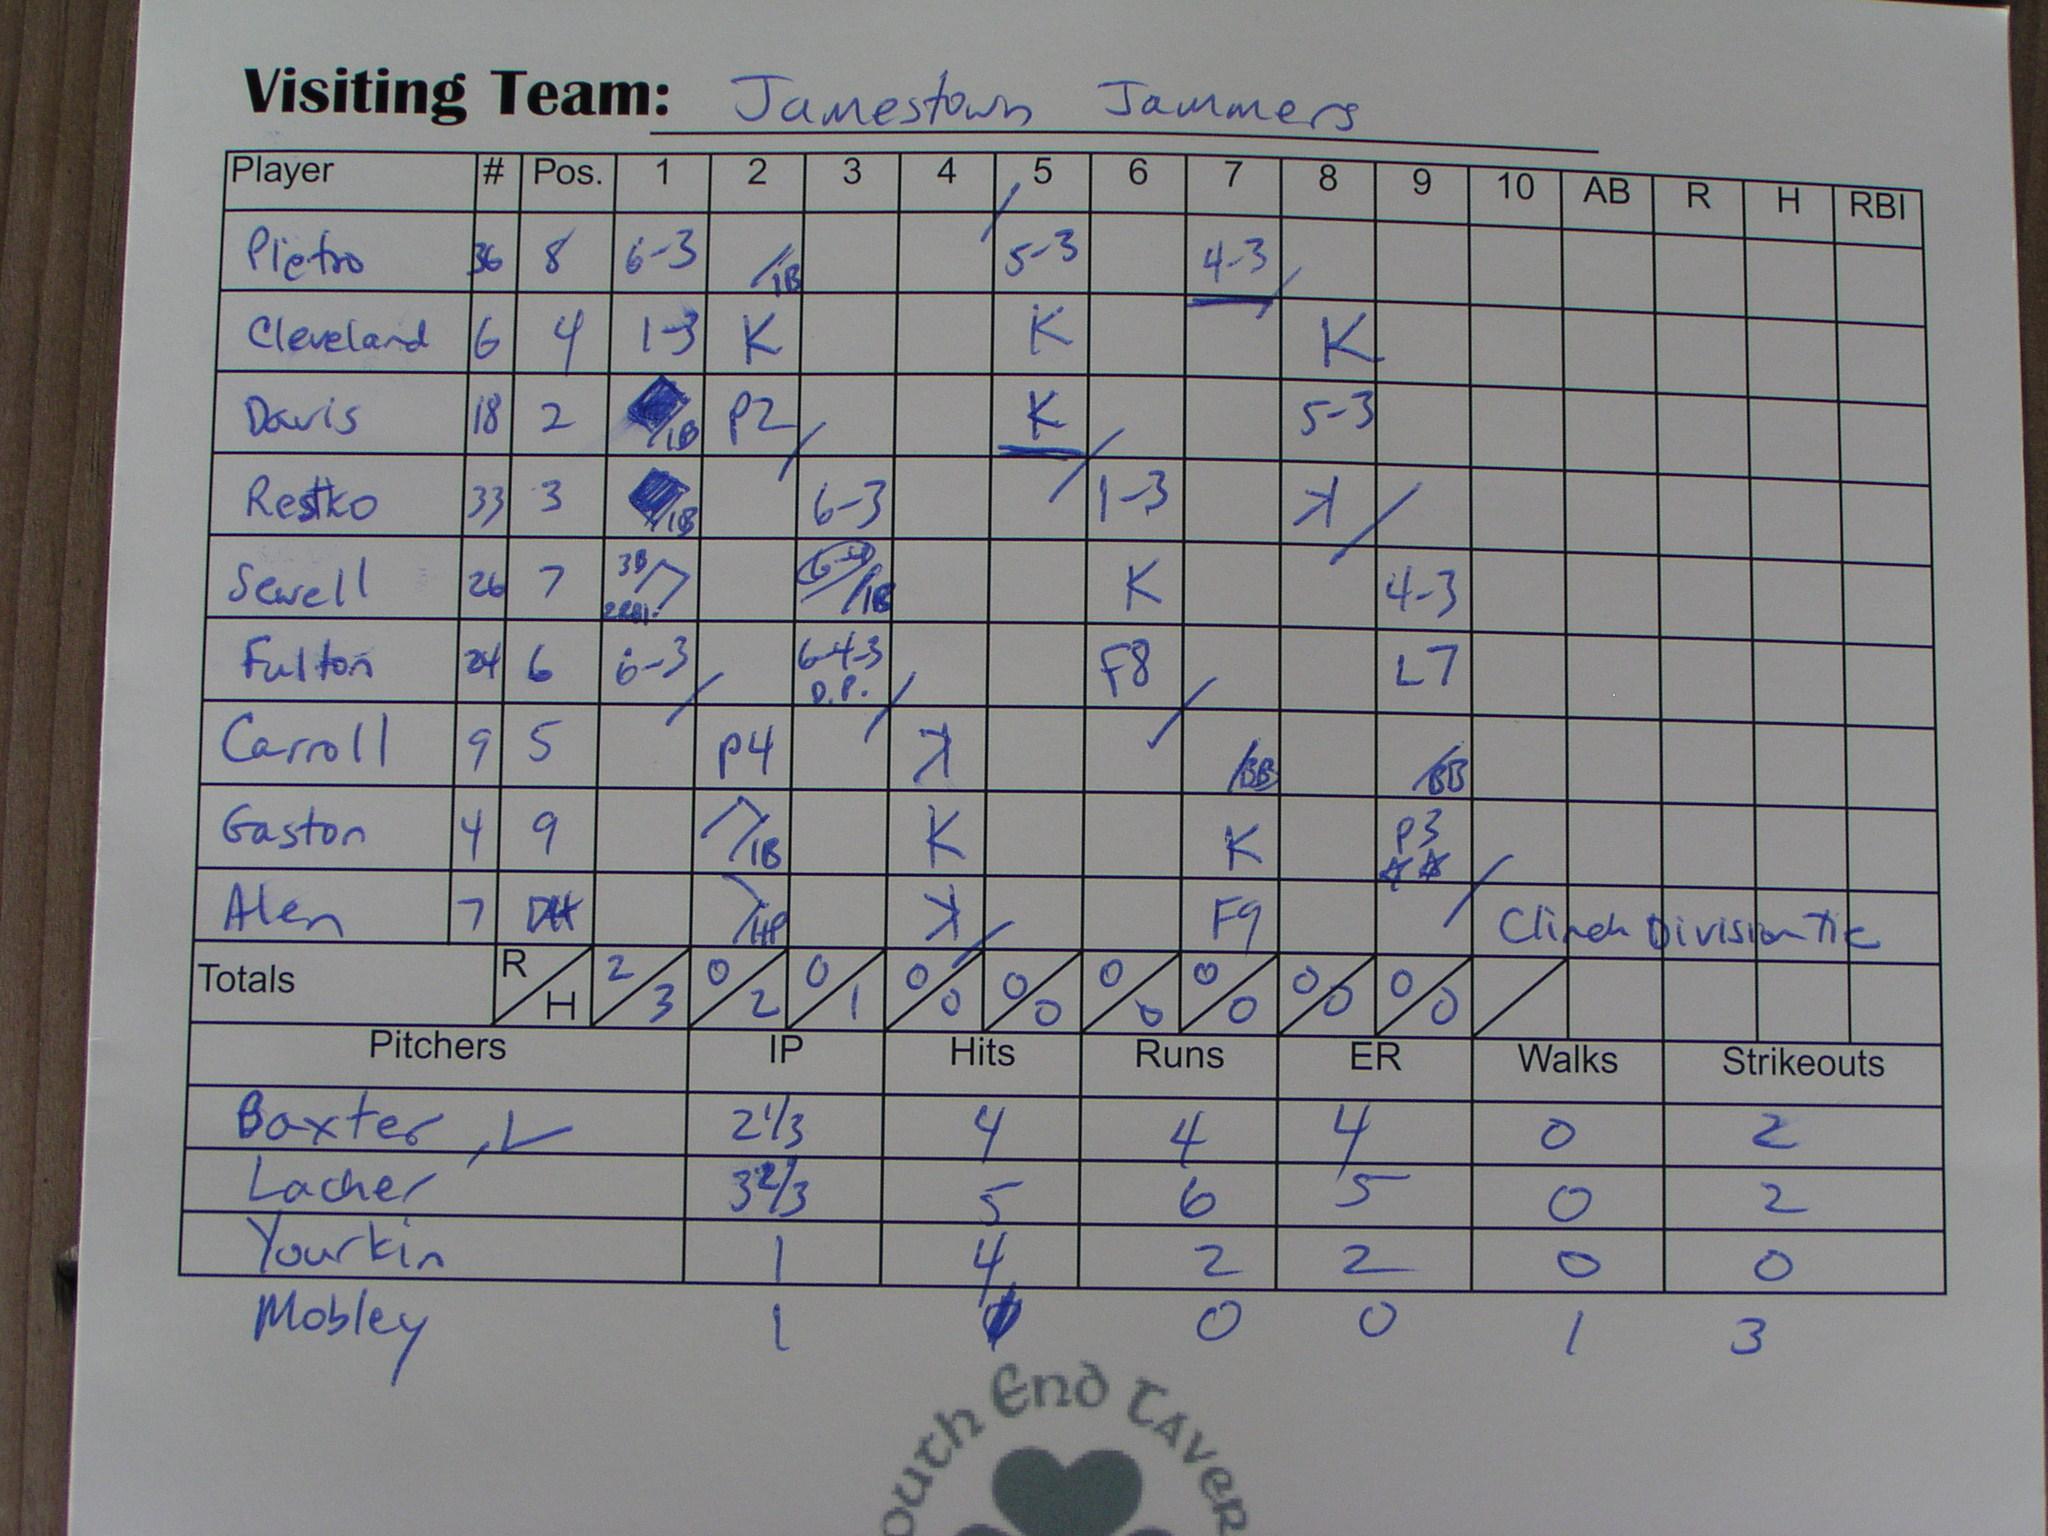 Visiting Team: Jamestown Jammers
Player # Pos. 1 2 3 4 5 6 7 8 9 10 AB R H RBI
Pietro 36 8 6-3 1B 5-3 4-3
Cleveland 6 4 1-3 K K K
Davis 18 2 1B P2 K 5-3
Restko 33 3 1B 6-3 1-3 ꓘ
Sewell 26 7 3B 2RBI 6-4 1B K 4-3
Fulton 24 6 6-3 6-4-3 D.P. F8 L7
Carroll 9 5 P4 ꓘ BB BB
Gaston 4 9 1B K K P3
Alen 7 DH HP ꓘ F9 Clinch Division Tie
Totals R H 2 3 0 2 0 1 0 0 0 0 0 0 0 0 0 0 0 0
Pitchers IP Hits Runs ER Walks Strikeouts
Baxter, L 2 1/3 4 4 4 0 2
Lacher 3 2/3 5 6 5 0 2
Yourkin 1 4 2 2 0 0
Mobley 1 0 0 1 3
outh End Taver